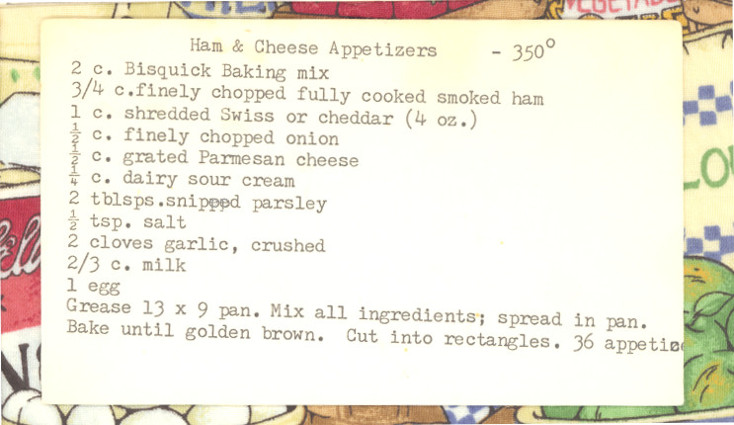 VEGETAB
Ham & Cheese Appetizers - 350°
2 c. Bisquick Baking mix
3/4 c.finely chopped fully cooked smoked ham
1 c. shredded Swiss or cheddar (4 oz.)
½ c. finely chopped onion
½ c. grated Parmesan cheese
¼ c. dairy sour cream
2 tblsps.snipped parsley
½ tsp. salt
2 cloves garlic, crushed
2/3 c. milk
1 egg
Grease 13 x 9 pan. Mix all ingredients; spread in pan.
Bake until golden brown. Cut into rectangles. 36 appetize